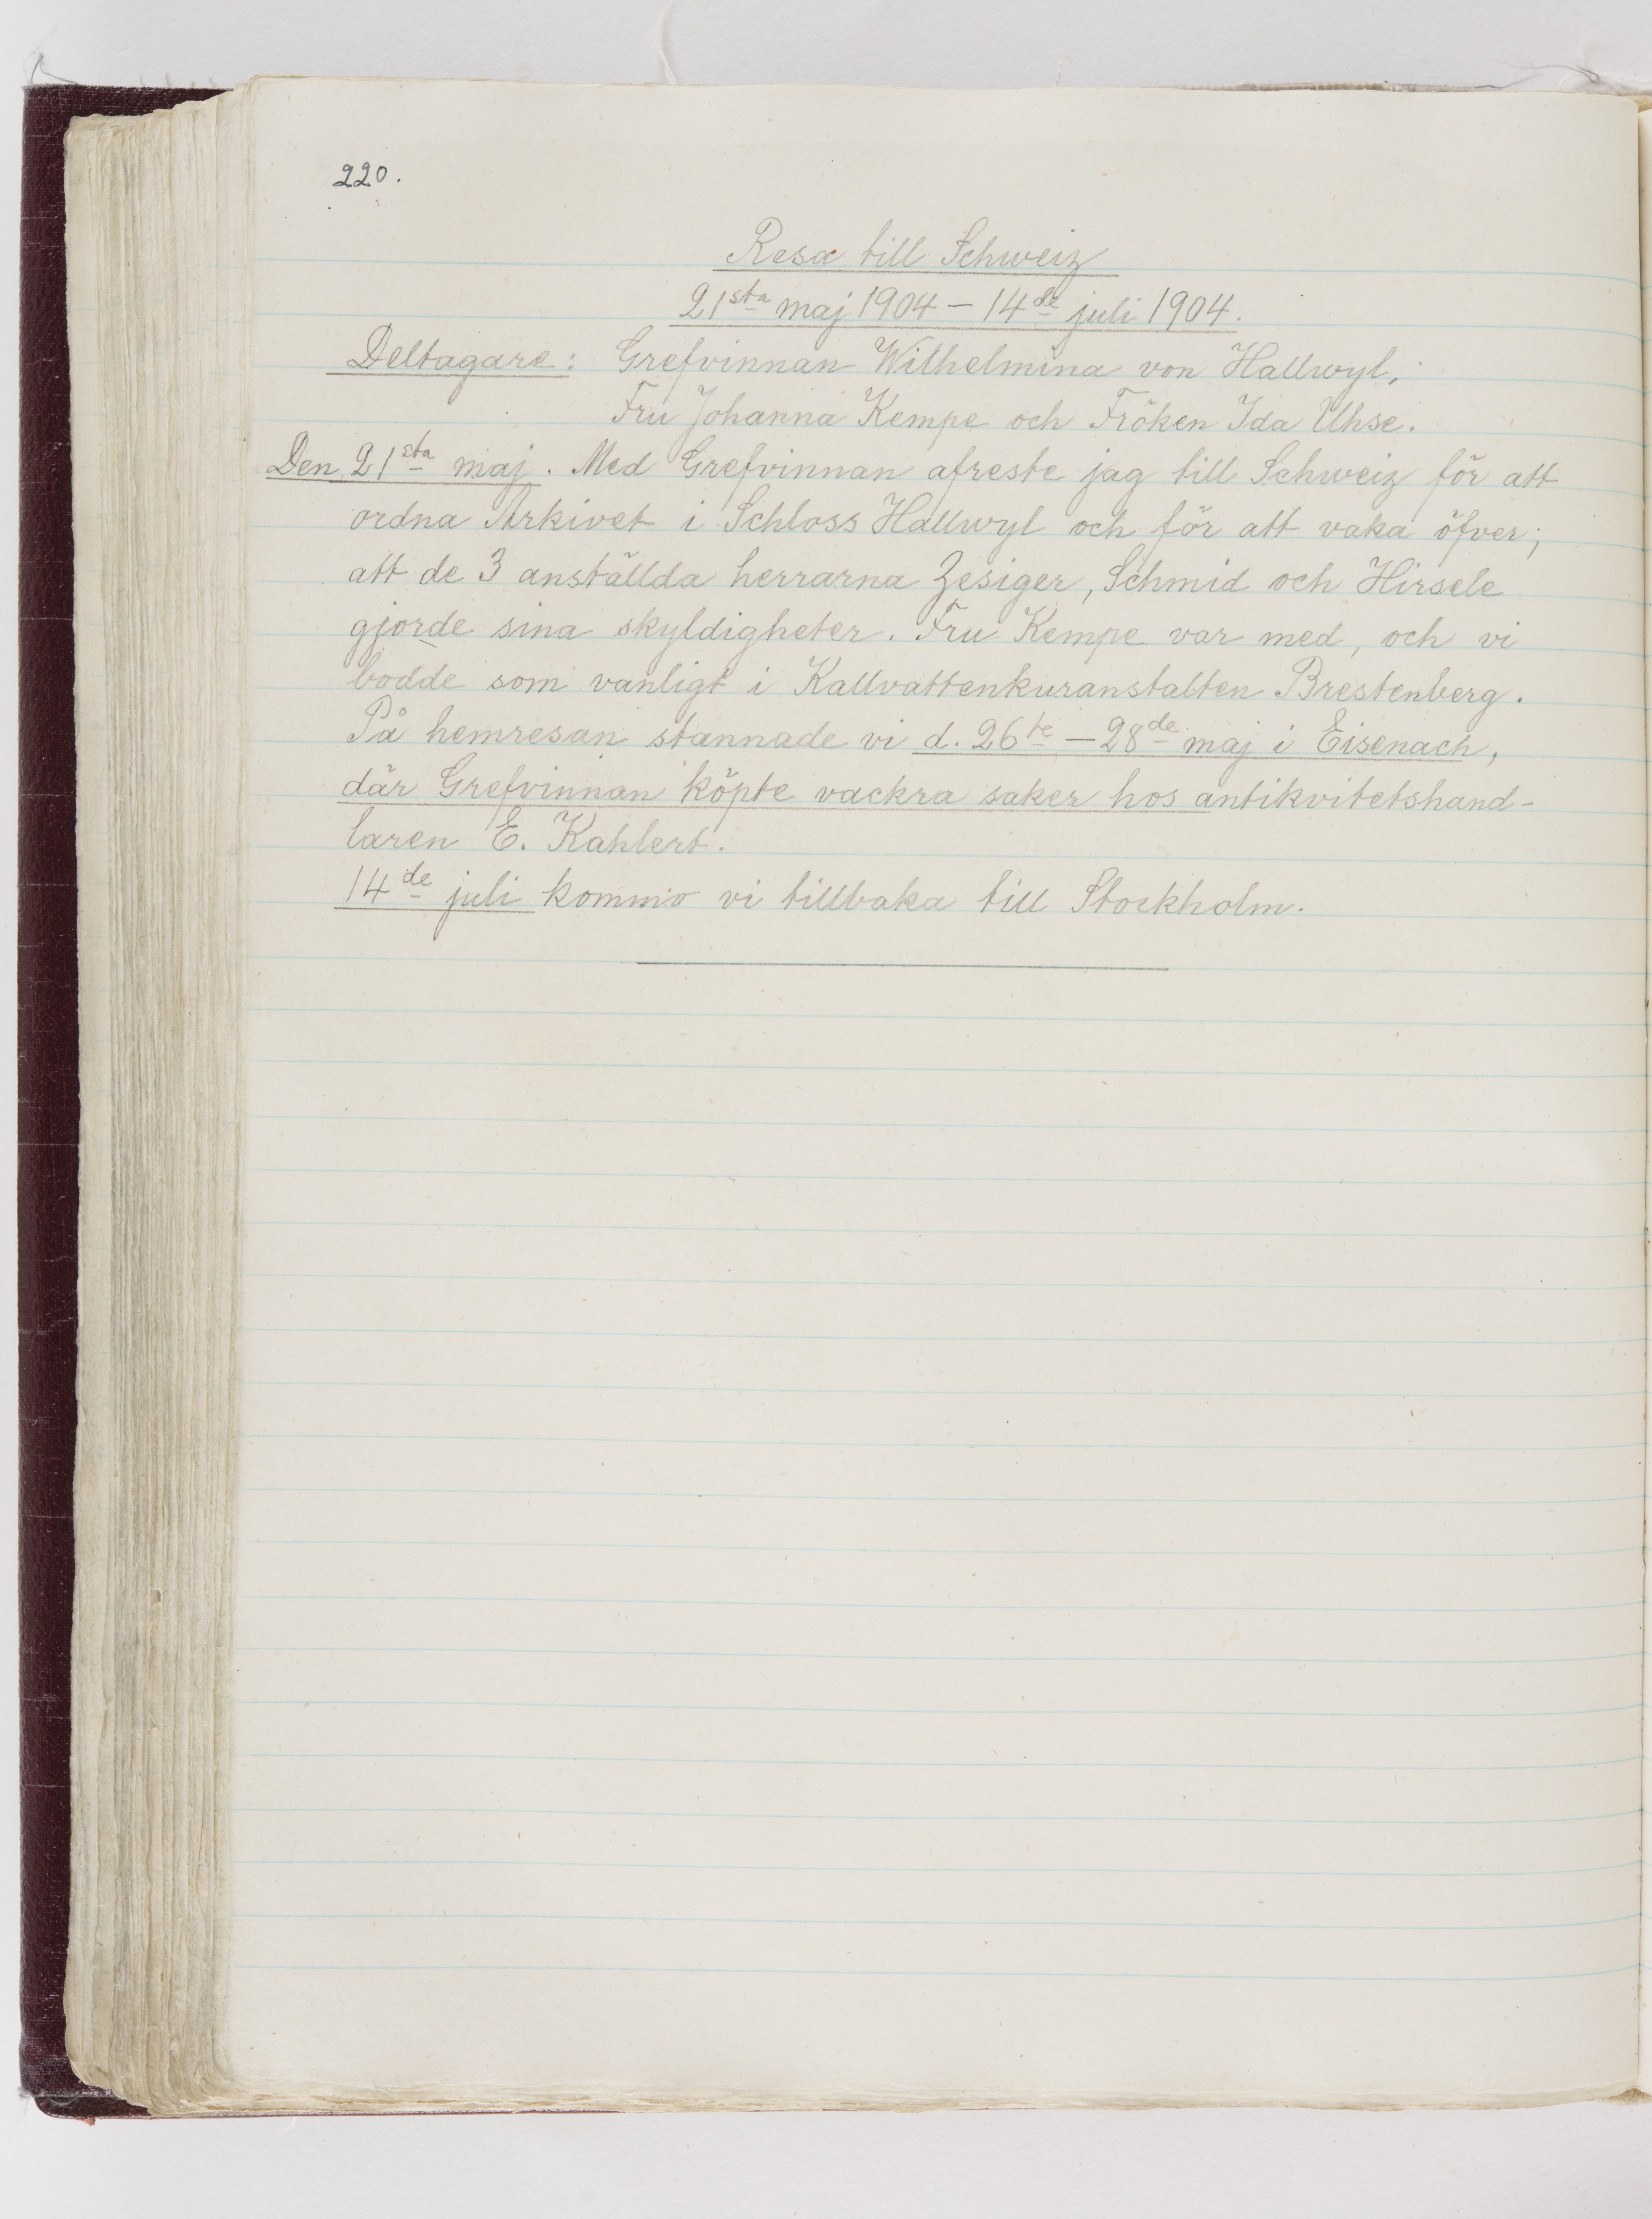 220.
Resa till Schweiz
21sta maj 1904 – 14de juli 1904.
Deltagare: Grefvinnan Wilhelmina von Hallwyl,
Fru Johanna Kempe och Fröken Ida Uhse.
Den 21sta maj. Med Grefvinnan afreste jag till Schweiz för att
ordna Arkivet i Schloss Hallwyl och för att vaka öfver,
att de 3 anställda herrarna Zesiger, Schmid och Hirsele
gjorde sina skyldigheter. Fru Kempe var med, och vi
bodde som vanligt i Kallvattenkuranstalten Brestenberg.
På hemresan stannade vi d. 26te – 28de maj i Eisenach,
där Grefvinnan köpte vackra saker hos antikvitetshand-
laren E. Kahlert.
14de juli kommo vi tillbaka till Stockholm.